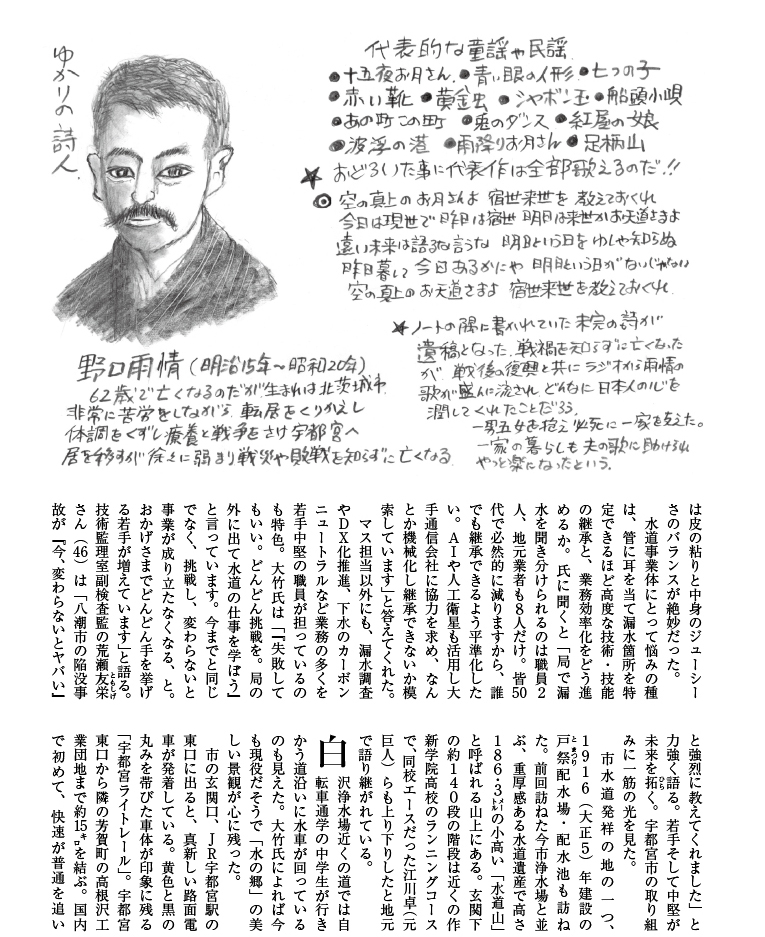 ゆかりの詩人、
代表的な童謡や民謡
●十五夜お月さん、●青い眼の人形 ●七つの子
●赤い靴 ●黄金虫 ●シャボン玉 ●船頭小唄
●あの町この町 ●兎のダンス ●紅屋の娘
●波浮の港 ●雨降りお月さん ●足柄山
★おどろいた事に代表作は全部歌えるのだ!!
◎空の真上のお月さんよ 宿世来世を教えておくれ
今日は現世で昨日は宿世 明日は来世かお天道さまよ
遠い未来は語るな言うな 明日という日をゆしや知らぬ
昨日暮して今日あるかにや 明日という日がないじゃない
空の真上のお天道さまよ 宿世来世を教えておくれ
★ノートの隅に書かれていた未完の詩が
遺稿となった。戦禍を知らずに亡くなった
が 戦後の復興と共にラジオから雨情の
歌が盛んに流され どんなに日本人の心を
潤してくれたことだろう。
一男五女を抱え必死に一家を支えた。
一家の暮らしも夫の歌に助けられ
やっと楽になったという。
野口雨情(明治15年〜昭和20年)
62歳で亡くなるのだが生まれは北茨城市
非常に苦労をしながら 転居をくりかえし
体調をくずし療養と戦争をさけ宇都宮へ
居を移すが徐々に弱まり戦災や敗戦を知らずに亡くなる
は皮の粘りと中身のジューシー
さのバランスが絶妙だった。
水道事業体にとって悩みの種
は、管に耳を当て漏水箇所を特
定できるほど高度な技術・技能
の継承と、業務効率化をどう進
めるか。氏に聞くと「局で漏
水を聞き分けられるのは職員2
人、地元業者も8人だけ。皆50
代で必然的に減りますから、誰
でも継承できるよう平準化した
い。AIや人工衛星も活用し大
手通信会社に協力を求め、なん
とか機械化し継承できないか模
索しています」と答えてくれた。
マス担当以外にも、漏水調査
やDX化推進、下水のカーボン
ニュートラルなど業務の多くを
若手中堅の職員が担っているの
も特色。大竹氏は「『失敗して
もいい。どんどん挑戦を。局の
外に出て水道の仕事を学ぼう』
と言っています。今までと同じ
でなく、挑戦し、変わらないと
事業が成り立たなくなる、と。
おかげさまでどんどん手を挙げ
る若手が増えています」と語る。
技術監理室副検査監の荒瀬友栄
さん(46)は「八潮市の陥没事
故が『今、変わらないとヤバい』
と強烈に教えてくれました」と
力強く語る。若手そして中堅が
未来を拓く。宇都宮市の取り組
みに一筋の光を見た。
市水道発祥の地の一つ、
1916(大正5)年建設の
戸祭配水場・配水池も訪ね
た。前回訪ねた今市浄水場と並
ぶ、重厚感ある水道遺産で高さ
186・3㍍の小高い「水道山」
と呼ばれる山上にある。玄関下
の約140段の階段は近くの作
新学院高校のランニングコース
で、同校エースだった江川卓(元
巨人)らも上り下りしたと地元
で語り継がれている。
白沢浄水場近くの道では自
転車通学の中学生が行き
かう道沿いに水車が回っている
のも見えた。大竹氏によれば今
も現役だそうで「水の郷」の美
しい景観が心に残った。
市の玄関口、JR宇都宮駅の
東口に出ると、真新しい路面電
車が発着している。黄色と黒の
丸みを帯びた車体が印象に残る
「宇都宮ライトレール」。宇都宮
東口から隣の芳賀町の高根沢工
業団地まで約15㌔を結ぶ。国内
で初めて、快速が普通を追い